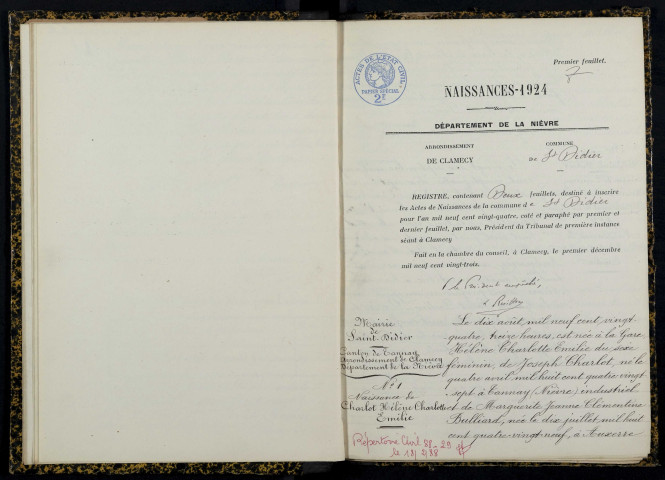 Premier feuillet.
ACTES DE L'ÉTAT CIVIL
PAPIER SPÉCIAL
2F
NAISSANCES-1924
DÉPARTEMENT DE LA NIÈVRE
ARRONDISSEMENT
DE CLAMECY
COMMUNE
DE St Didier
REGISTRE, contenant Deux feuillets, destiné à inscrire
les Actes de Naissances de la commune de St Didier
pour l'an mil neuf cent vingt-quatre, coté et paraphé par premier et
dernier feuillet, par nous, Président du Tribunal de première instance
séant à Clamecy
Fait en la chambre du conseil, à Clamecy, le premier décembre
mil neuf cent vingt-trois.
le Président
Mairie
de
Saint-Didier
Canton de Tannay
Arrondissement de Clamecy
Département de la Nièvre
N° 1
Naissance de
Charlot Hélène Charlotte
Emilie
Répertoire Civil 88-29
le 12/2/38
Le dix août mil neuf cent vingt
quatre, treize heures, est née à la Gare
Hélène Charlotte Emilie du sexe
féminin, de Joseph Charlot, né le
quatre avril mil huit cent quatre vingt
sept à Tannay (Nièvre) industriel
et de Marguerite Jeanne Clémentine
Bulliard, née le dix juillet mil huit
cent quatre-vingt-neuf, à Auxerre